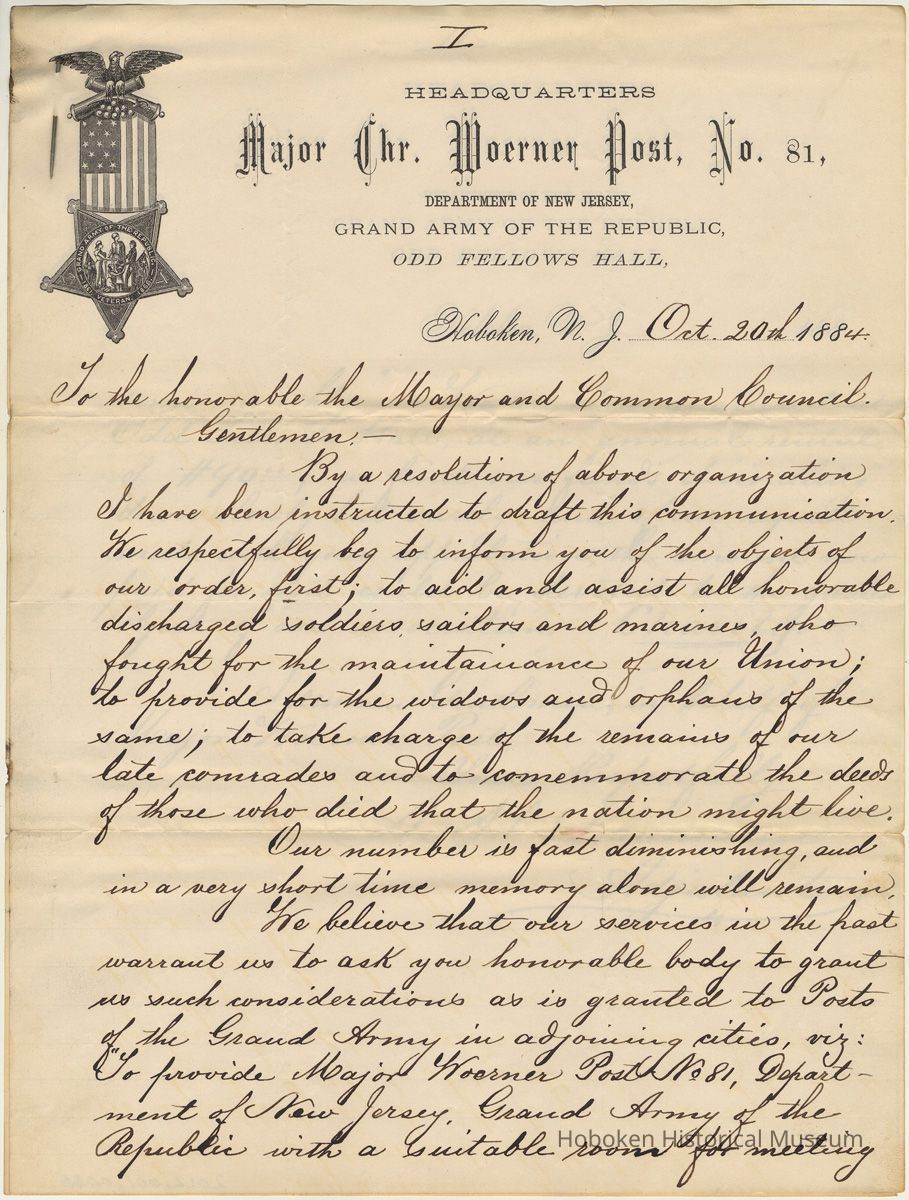 I
HEADQUARTERS
Major Chr. Woerner Post, No. 81,
DEPARTMENT OF NEW JERSEY,
GRAND ARMY OF THE REPUBLIC,
ODD FELLOWS HALL,
GRAND ARMY OF THE REPUBLIC
1861 VETERAN 1866
Hoboken, N. J. Oct. 20th 1884.
To the honorable the Mayor and Common Council.
Gentlemen. —
By a resolution of above organization
I have been instructed to draft this communication.
We respectfully beg to inform you of the objects of
our order, first; to aid and assist all honorable
discharged soldiers, sailors and marines, who
fought for the maintainance of our Union;
to provide for the widows and orphans of the
same; to take charge of the remains of our
late comrades and to comemmorate the deeds
of those who died that the nation might live.
Our number is fast diminishing, and
in a very short time memory alone will remain.
We believe that our services in the past
warrant us to ask you honorable body to grant
us such considerations as is granted to Posts
of the Grand Army in adjoining cities, viz:
"To provide Major Woerner Post No 81, Depart-
ment of New Jersey, Grand Army of the
Republic with a suitable room for meeting
Hoboken Historical Museum